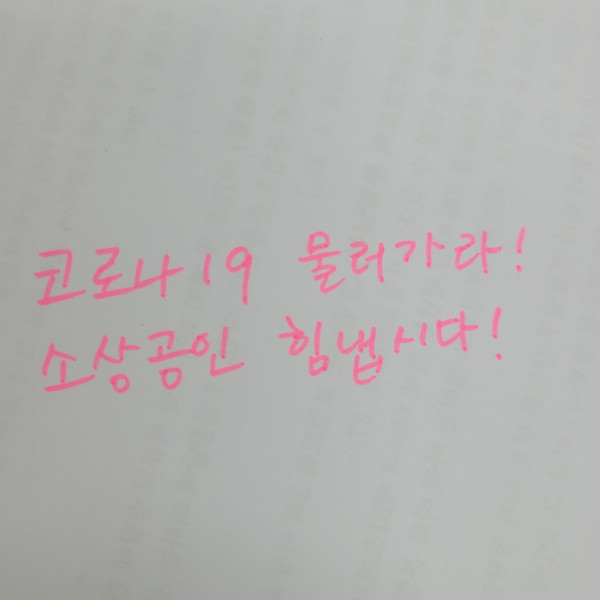 코로나19 물러가라!
소상공인 힘냅시다!